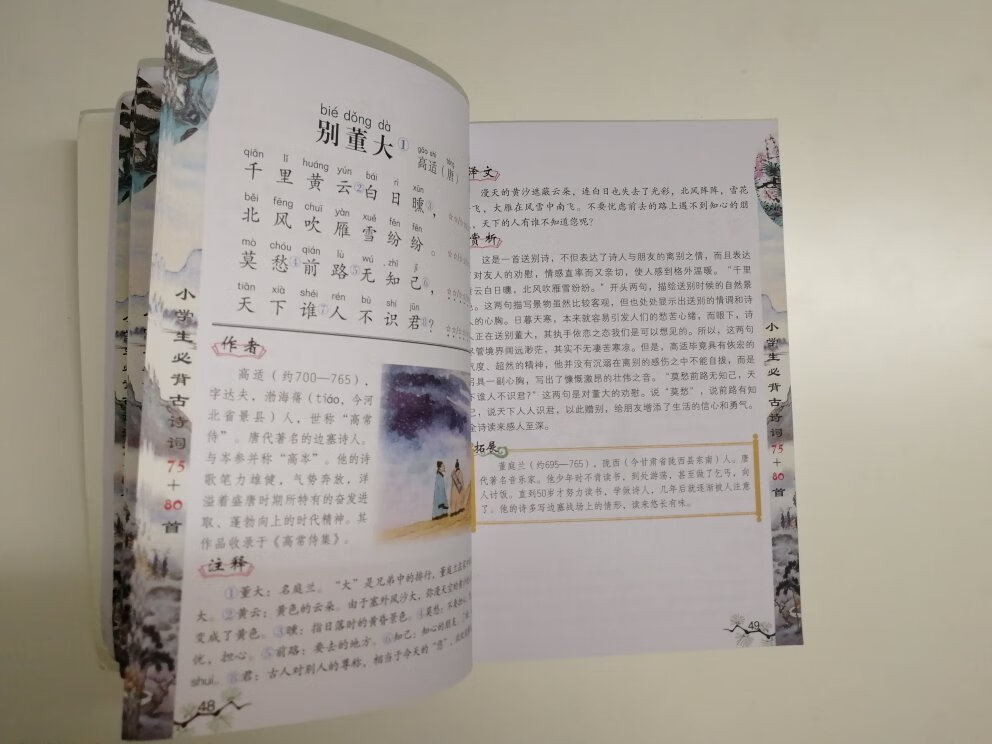 bié dǒng dà
别董大①
gāo shì táng
高适（唐）
qiān lǐ huáng yún bái rì xūn
千里黄云②白日曛③，
běi fēng chuī yàn xuě fēn fēn
北风吹雁雪纷纷。
mò chóu qián lù wú zhī jǐ
莫愁④前路⑤无知己⑥，
tiān xià shéi rén bù shí jūn
天下谁⑦人不识君⑧？
作者
高适（约700—765），
字达夫，渤海蓨（tiáo，今河
北省景县）人，世称“高常
侍”。唐代著名的边塞诗人。
与岑参并称“高岑”。他的诗
歌笔力雄健，气势奔放，洋
溢着盛唐时期所特有的奋发进
取、蓬勃向上的时代精神。其
作品收录于《高常侍集》。
注释
①董大：名庭兰。“大”是兄弟中的排行，董庭兰在
大。②黄云：黄色的云朵。由于塞外风沙大，弥漫天空的黄沙
变成了黄色。③曛：指日落时的黄昏景色。④莫愁：不要
忧，担心。⑤前路：要去的地方。⑥知己：知心的朋友。
shuí。⑧君：古人对别人的尊称，相当于今天的“您”，
48
小学生必背古诗词75+80首
译文
漫天的黄沙遮蔽云朵，连白日也失去了光彩，北风阵阵，雪花
飞，大雁在风雪中南飞。不要忧虑前去的路上遇不到知心的朋
，天下的人有谁不知道您呢？
赏析
这是一首送别诗，不但表达了诗人与朋友的离别之情，而且表达
对友人的劝慰，情感直率而又亲切，使人感到格外温暖。“千里
黄云白日曛，北风吹雁雪纷纷。”开头两句，描绘送别时候的自然景
色。这两句描写景物虽然比较客观，但也处处显示出送别的情调和诗
人的心胸。日暮天寒，本来就容易引发人们的愁苦心绪，而眼下，诗
人正在送别董大，其执手依恋之态我们是可以想见的。所以，这两句
尽管境界阔远渺茫，其实不无凄苦寒凉。但是，高适毕竟具有恢宏的
气度、超然的精神，他并没有沉溺在离别的感伤之中不能自拔，而是
另具一副心胸，写出了慷慨激昂的壮伟之音。“莫愁前路无知己，天
下谁人不识君？”这两句是对董大的劝慰。说“莫愁”，说前路有知
己，说天下人人识君，以此赠别，给朋友增添了生活的信心和勇气。
全诗读来感人至深。
拓展
董庭兰（约695—765），陇西（今甘肃省陇西县东南）人。唐
代著名音乐家。他少年时不肯读书，到处游荡，甚至做了乞丐，向
人讨饭。直到50岁才努力读书，学做诗人，几年后就逐渐被人注意
了。他的诗多写边塞战场上的情形，读来悠长有味。
49
小学生必背古诗词75+80首